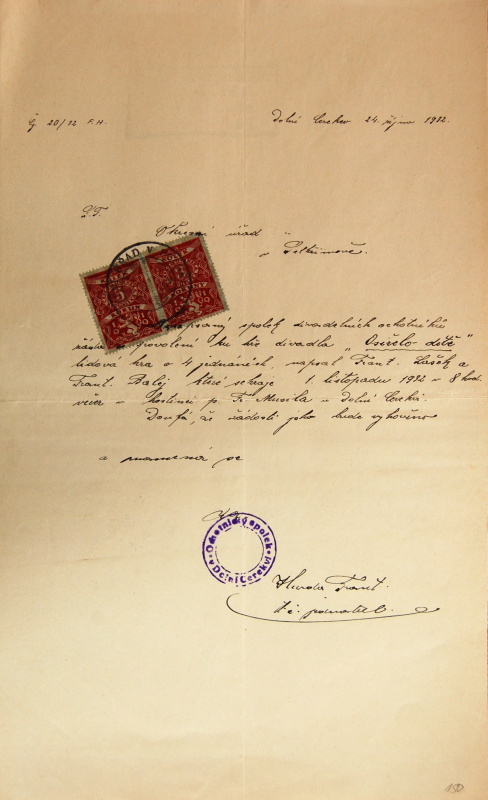 Čj 20/32 F.H.
Dolní Cerekev 24. října 1932.
P.T.
Okresní úřad
v Pelhřimově.
spolek divadelních ochotníků
povolení ku hře divadla "Osiřelo dítě"
lidová hra o 4 jednáních, napsal Frant. a
Frant. Balej které sehraje 1. listopadu 1932 v 8 hod.
večer v hostinci p. Fr. Musila v Dolní Cerekvi.
Doufá, že žádosti jeho bude vyhověno
a znamená se
Ochotnický spolek
v Dolní Cerekvi
Frant.
t.č. jednatel.
150